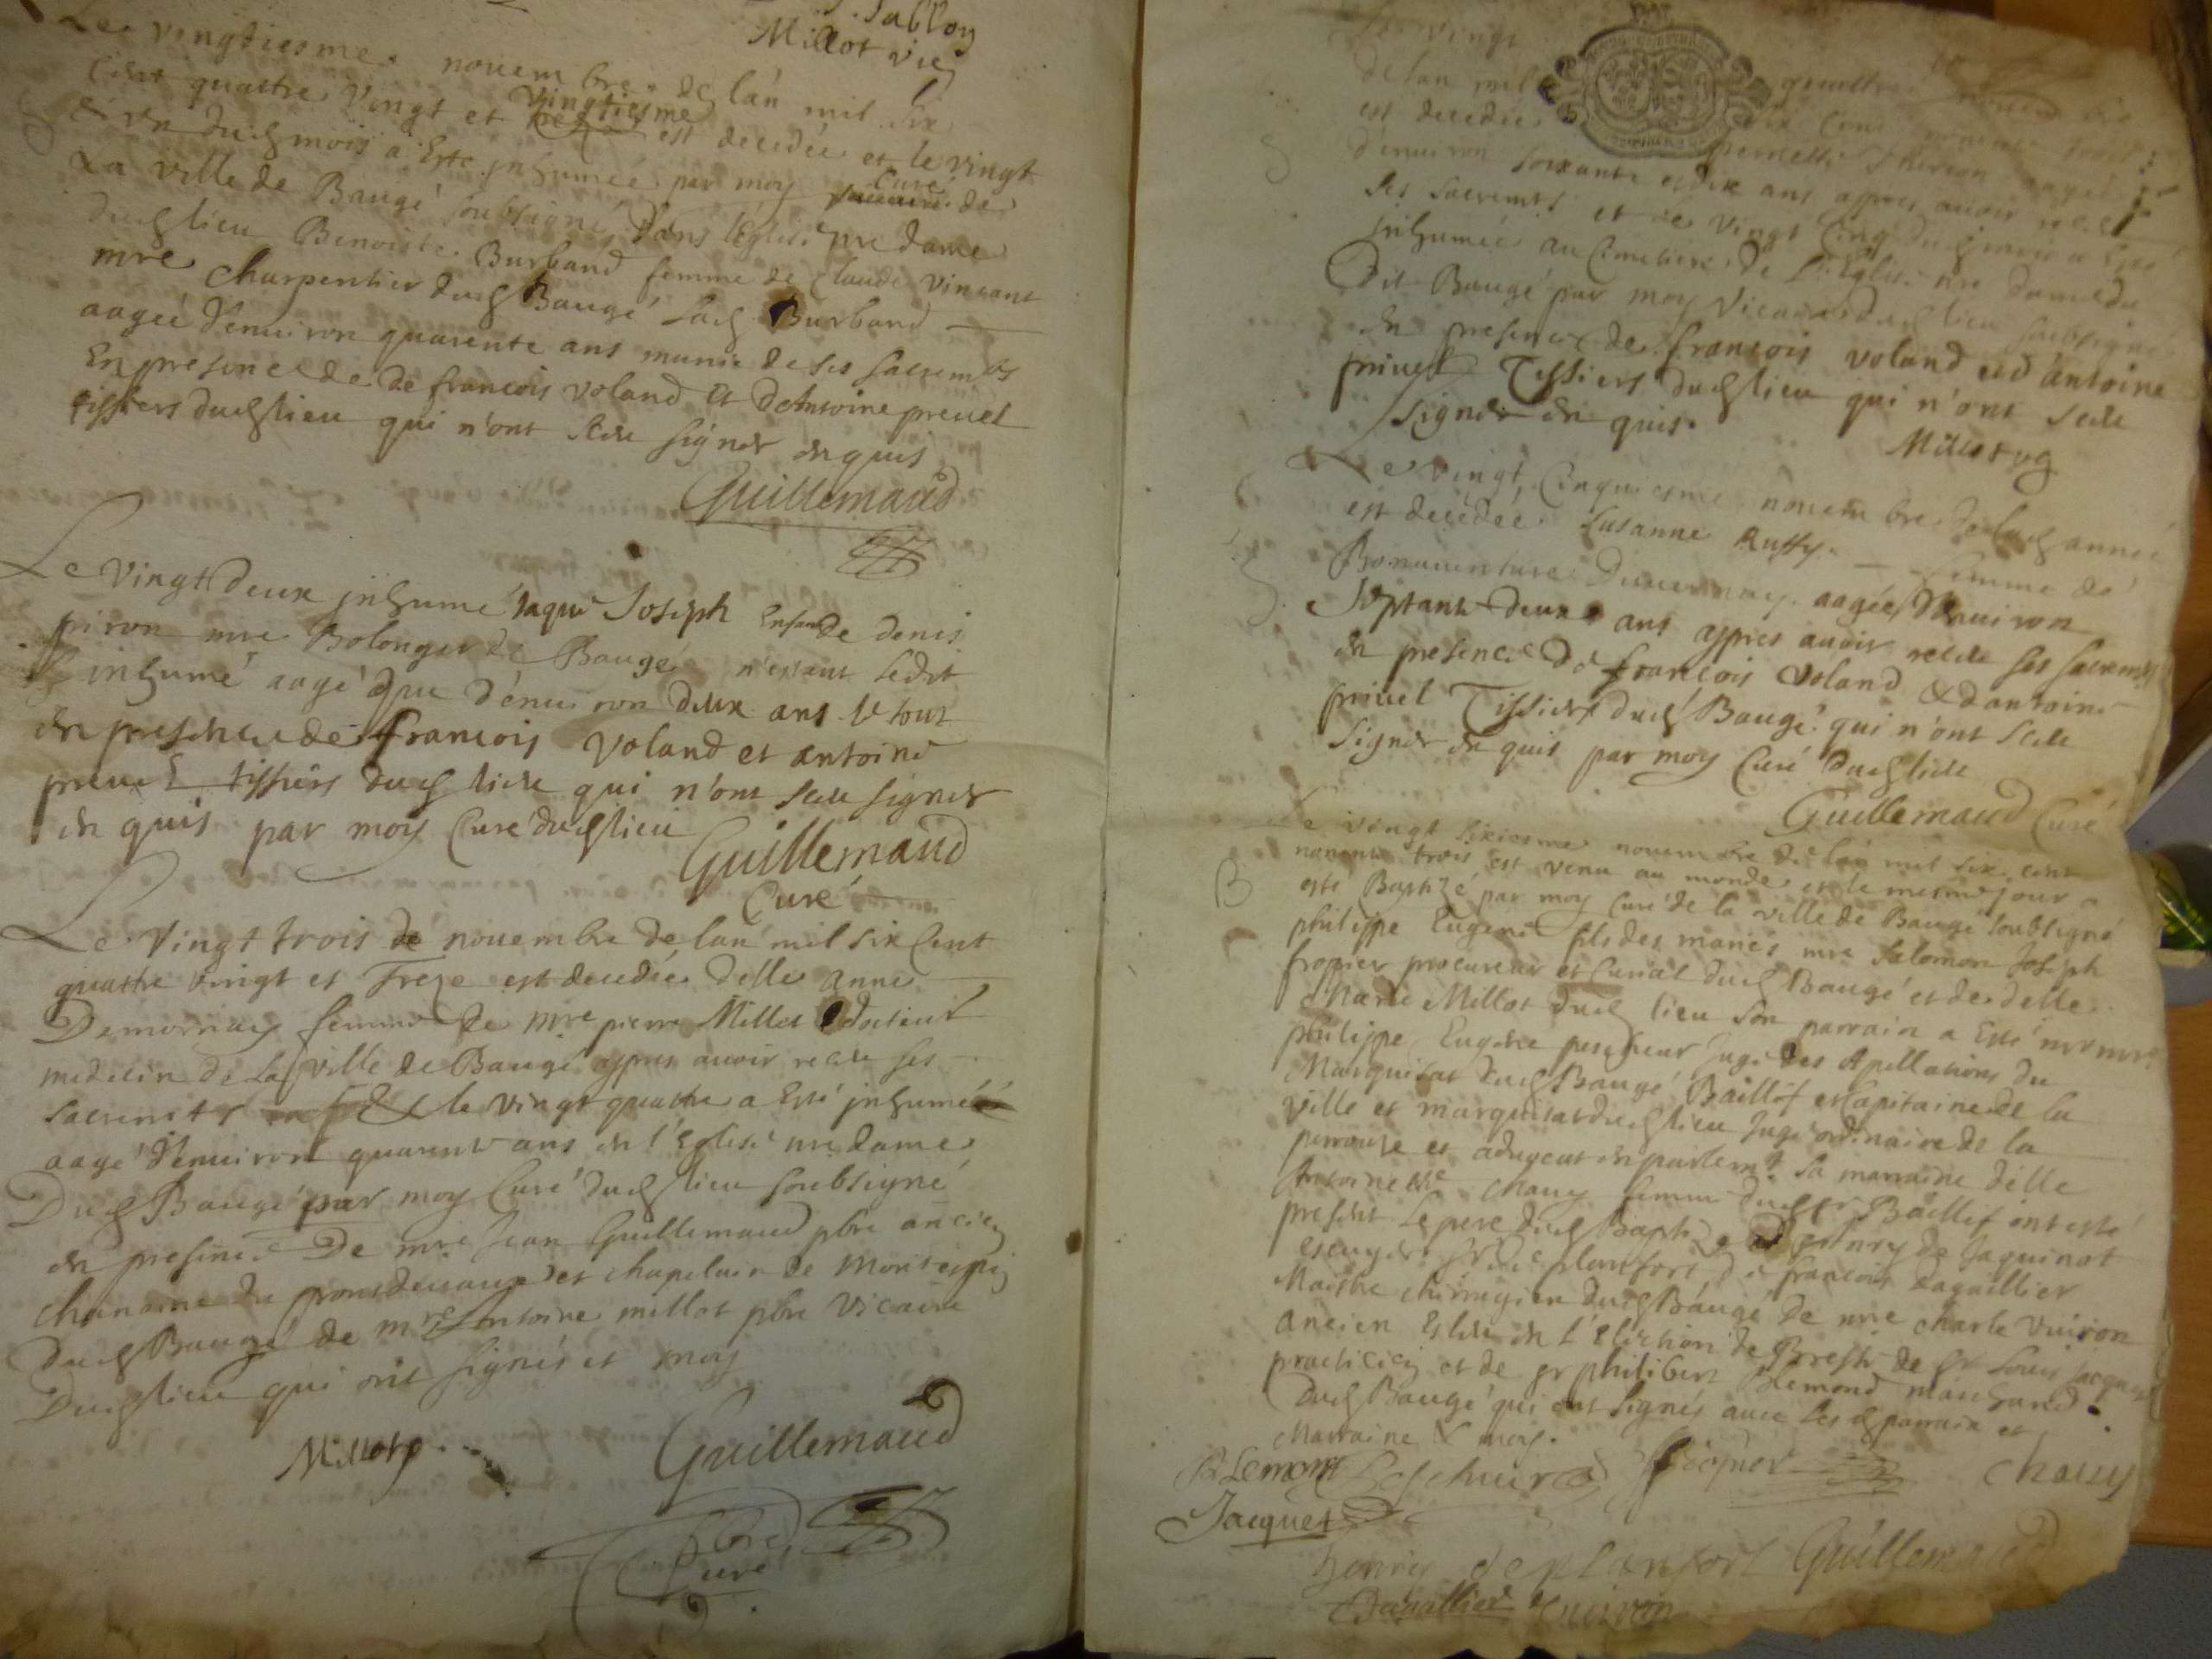 Sablon
Millot vic
Le vingtiesme novembre de lan mil six
cent quattre vingt et treze vingtiesme est decedée et le vingt
et un dud mois a esté inhumée par moy curé de
La ville de Baugé soubsigné dans leglise nre dame
dud lieu Benoiste Burband femme de Claude Vincent
mre charpentier dud Baugé lad Burband
aagée d'enuiron quarente ans munie de ses sacremts
En presence de de francois voland et dAntoine preuel
tissiers dud lieu qui n'ont sceu signer enquis
Guillemaud
Le vingt deux inhumé Jaque Joseph Enfan de denis
piron mre Bolonger de Baugé n'estant ledit
inhumé aagé que d'enuiron deux ans le tout
en presence de francois voland et antoine
preuel tissiers dud lieu qui n'ont sceu signer
en quis par moy Curé dud lieu
Guillemaud
Curé
Le vingt trois de nouembre de lan mil six cent
quattre vingt et Treze est decedée delle anne
Demornay femme de mre pierre Millot docteur
medecin de la ville de Baugé appres auoir receu ses
sacremts et le vingt quattre a esté inhumée
aagé d'enuiron quarente ans en l'Eglise nre dame
Dud Baugé par moy Curé dud lieu soubsigné
en presence De mre Jean Guillemaud pbre ancien
chanoine du pont de vaux et chapelain de
dud Baugé de mre Antoine millot pbre vicaire
Dud lieu qui ont signés et moy
Millot Guillemaud
pbre
Curé
Le vingt quattre
de lan mil six cent nonante trois
est decedée pernette aagée
d'enuiron soixante et dix ans appres auoir receu
ses sacremts et le vingt cinq dud mois a esté
inhumée au cimetiere de l'Eglise nre dame du
Dit Baugé par moy vicaire dud lieu soubsigné
en presence de francois voland et d'antoine
preuel Tissiers dud lieu qui n'ont sceu
signer en quis.
Millot vic
Le vingt cinquiesme nouembre de lad année
est decedée Susanne Ruffy femme de
Bonnauenture aagée d'enuiron
Septante deux ans appres auoir receu ses sacremts
en presence de francois voland & d'antoine
preuel Tissiers dud Baugé qui n'ont sceu
signer en quis par moy Curé dud lieu
Guillemaud Curé
Le vingt sixiesme nouembre de lan mil six cent
B nonante trois est venu au monde et le mesme jour a
esté Baptizé par moy Curé de la ville de Baugé soubsigné
philippe Eugene fils des mariés mre Salomon Joseph
frogier procureur et Curial dud Baugé et de delle
Marie Millot dud lieu son parrain a Esté mre
philippe Eugene pescheur Juge des Apellations du
Marquisat dud Baugé Baillif et Capitaine de la
ville et marquisat dud lieu Juge ordinaire de la
perrouze et aduocat en parlemt sa marraine delle
Antoinette chauy femme dud sr Baillif ont esté
present Le pere dud Baptizé henry de Jaquinot
escuyer sr de planfort, de francois dagallier
Maistre chirurgien dud Baugé de mre charle vuiron
ancien Esleu en l'Election de Bresse de sr Louis Jacquet
practicien et de sr philibert Blemond marchand
dud Baugé qui ont signés auec les d parrain et
Marraine & moy.
Blemond Pescheur frogier chauy
Jacquet
henry de planfort Guillemaud
Dagallier vuiron